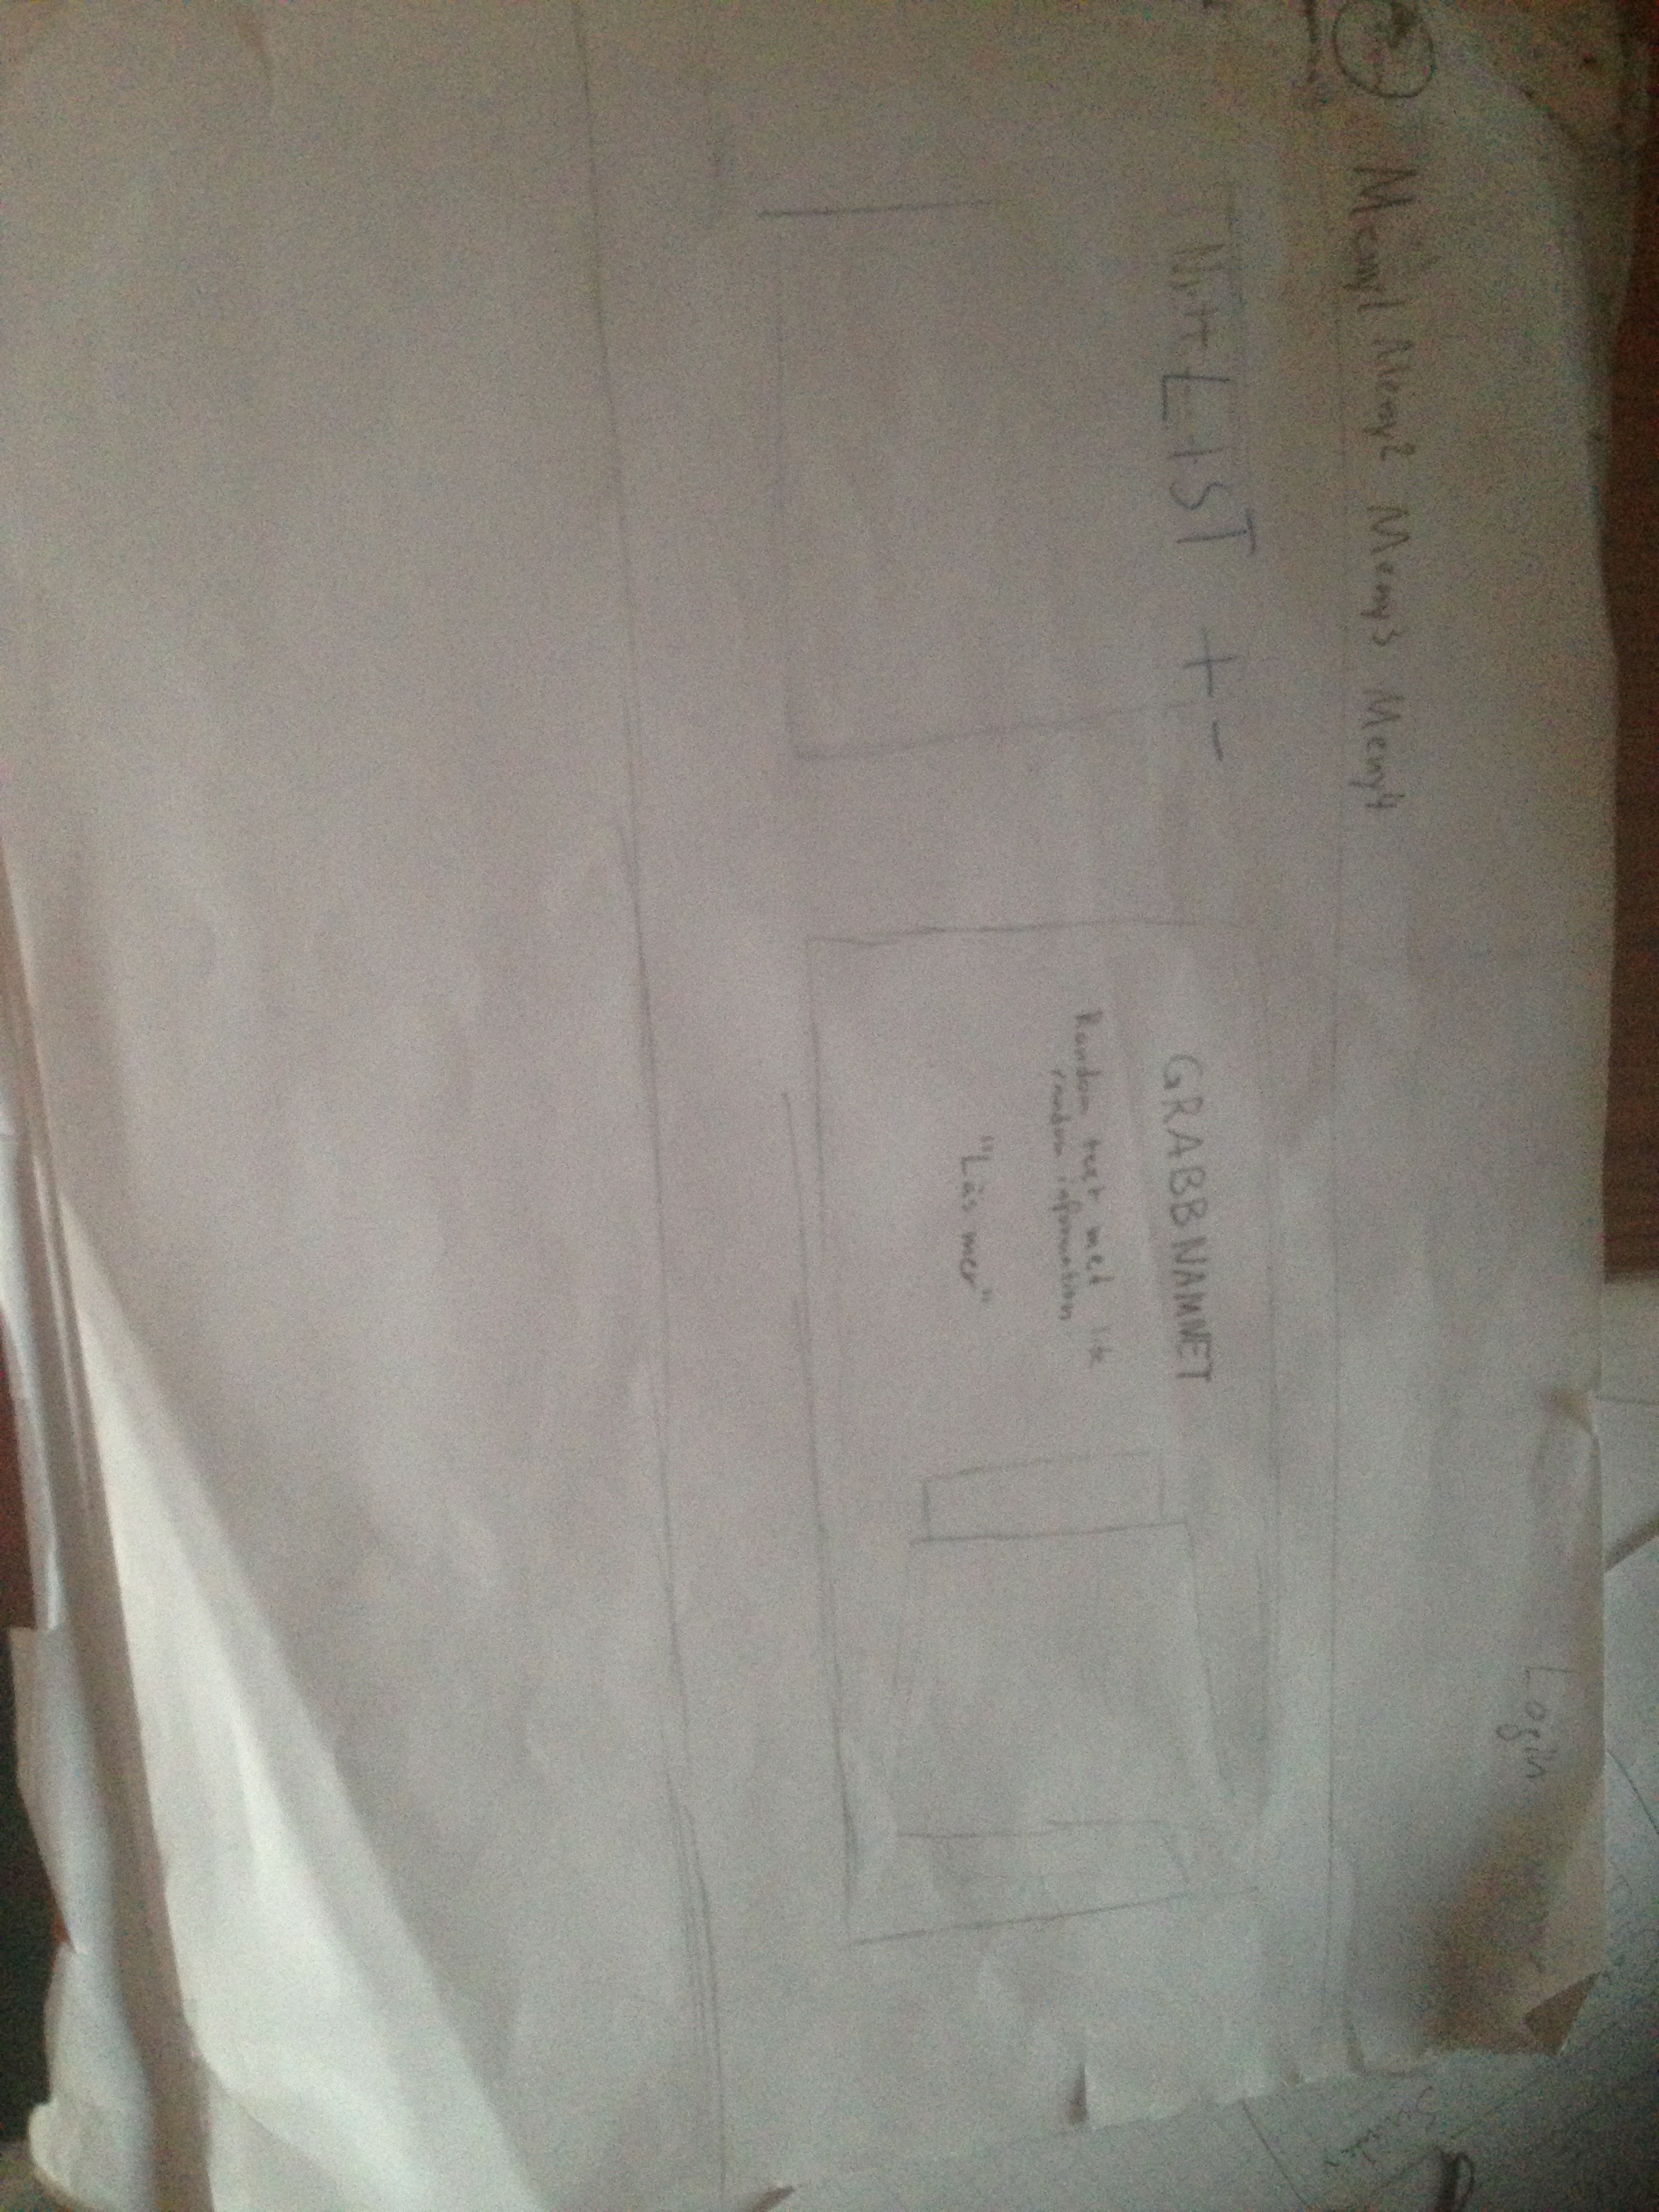 Login
Meny1 Meny2 Meny3 Meny4
LIST + -
GRABBNAMNET
Random text med lite
random information
"Läs mer"